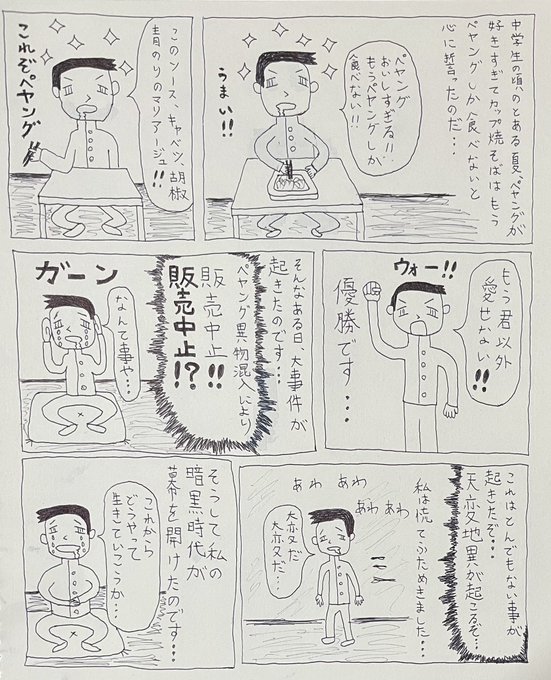 中学生の頃のとある夏、ペヤングが
好きすぎてカップ焼そばはもう
ペヤングしか食べないと
心に誓ったのだ…
ペヤング
おいしすぎる!!
もうペヤングしか
食べない!!
うまい!!
このソース、キャベツ、胡椒
青のりのマリアージュ!!
これぞペヤング!!
もう君以外
愛せない!!
ウォー!!
優勝です…
そんなある日、大事件が
起きたのです…
ペヤング異物混入により
販売中止!!
販売中止!?
ガーン
なんて事や…
これはとんでもない事が
起きたぞ…
天変地異が起こるぞ…
私は慌てふためきました…
あわ あわ
あわ あわ
大変だ
大変だ…
そうして私の
暗黒時代が
幕を開けたのです…
これから
どうやって
生きていこうか…